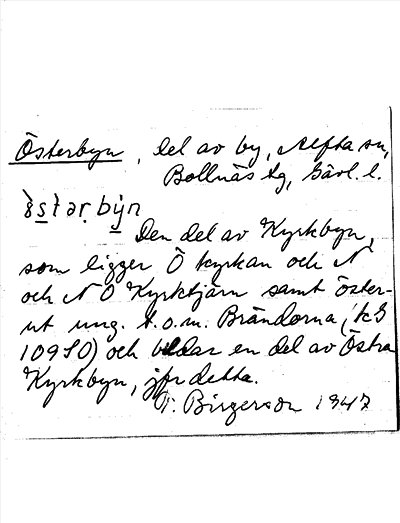 Österbyn, del av by, Alfta sn,
Bollnäs tg, Gävl. l.
Den del av Kyrkbyn,
som ligger Ö kyrkan och N
och NÖ Kyrktjärn samt öster-
ut ung. t.o.m. Brändorna (kS
10980) och bildar en del av Östra
Kyrkbyn, jfr detta.
T. Birgerson 1947